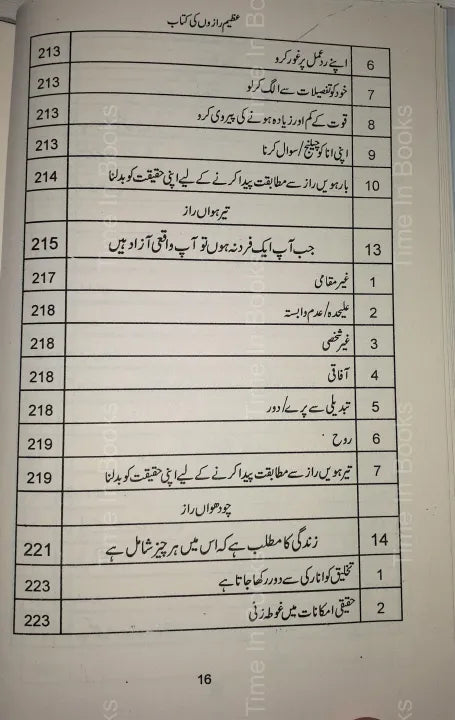 عظیم رازوں کی کتاب
6 اپنے ردِعمل پر غور کرو 213
7 خود کو تفصیلات سے الگ کر لو 213
8 قوت کے کم اور زیادہ ہونے کی پیروی کرو 213
9 اپنی انا کو چیلنج/سوال کرنا 213
10 بارہویں راز سے مطابقت پیدا کرنے کے لیے اپنی حقیقت کو بدلنا 214
تیرہواں راز
13 جب آپ ایک فرد نہ ہوں تو آپ واقعی آزاد ہیں 215
1 غیر مقامی 217
2 علیحدہ/عدم وابستہ 218
3 غیر شخصی 218
4 آفاقی 218
5 تبدیلی سے پرے/دور 218
6 روح 219
7 تیرہویں راز سے مطابقت پیدا کرنے کے لیے اپنی حقیقت کو بدلنا 219
چودھواں راز
14 زندگی کا مطلب ہے کہ اس میں ہر چیز شامل ہے 221
1 تخلیق کو انارکی سے دور رکھا جاتا ہے 223
2 حقیقی امکانات میں غوطہ زنی 223
16
Time In Books